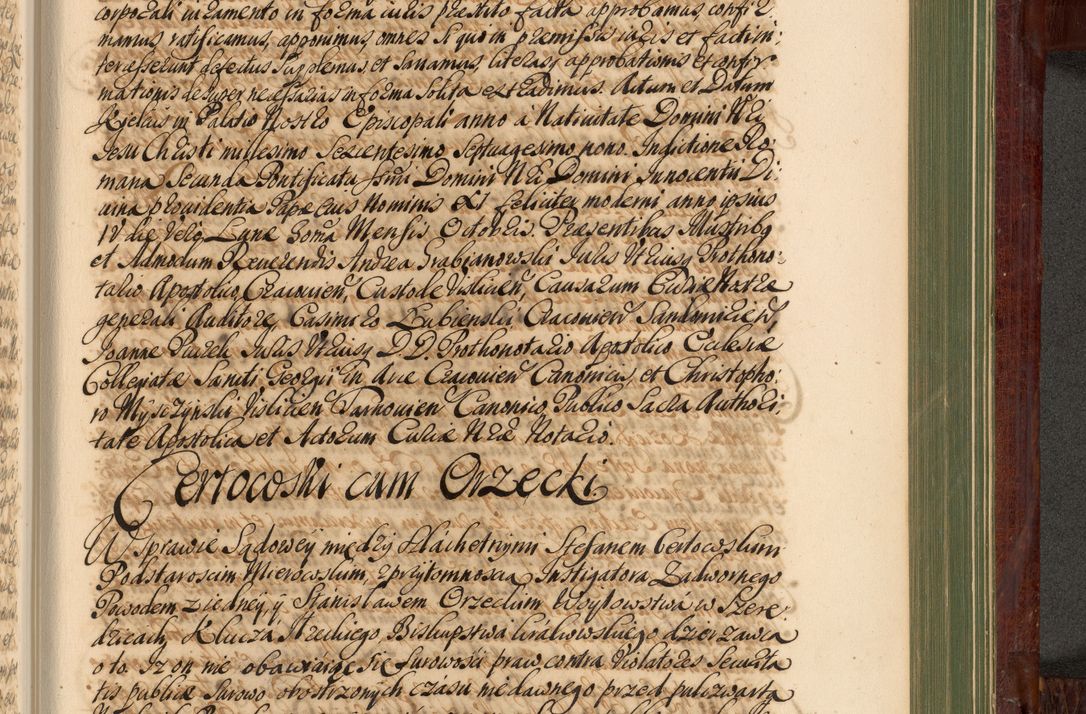 corporali iuramento in forma iuris præstito facta approbamus, confir:
mamus ratificamus, apponimus, omnes si qui in præmissis iuris et facti in:
teresserunt defectus supplemus, et sanamus literas, approbationis et confir
mationis desuper necessarias in forma solita extradimus. Actum et Datum
Kielciis in Palatio Nostro Episcopali anno a Nativitate Domini Nri
Jesu Christi millesimo Sexcentesimo Septuagesimo nono. Indictione Ro:
mana Secunda Pontificatu Ssmi Domini Nri Domini Innocentii Di:
uina providentia Papæ eius Nominis XI feliciter moderni anno ipsius
IV die vero Lunæ 2oma Mensis Octobris. Præsentibus Illustribq
et Admodum Reverendis Andrea Grabianowski Juris Utriusq Prothono:
tario Apostolico, Cracouien, Custode Vislicien, Causarum Curiæ Nostræ
generali Auditore, Casimiro Lubienski Cracouien Sandomirien,
Joanne Pucek Juris Utriusq D. D. Prothonotario Apostolico Ecclesiæ
Collegiatæ Sancti Georgii in Arce Cracouien Canonicis, et Christopho:
ro Myszynski Vislicien Tarnouien Canonico, Publico Sacra Authori:
tate Apostolica et Actorum Curiæ Nræ Notario.
Certocoski cum Orzecki
W sprawie Sądowey między szlachetnymi Stefanem Certocoskim
Podstaroscim Mierocoskim, z przytomnoscią Instigatora Zadwornego
Powodem z iedney, y Stanisławem Orzeckim Woytowstwá w Szere:
dzicach, Klucza Iłzeckiego Biskupstwa krakowskiego dzerzawcą
o to. Iz on nie obawiaiąc się surowosci praw contra Violatores Securita
tis publicæ surowo obostrzonych czasu niedawnego przed pułczwartą